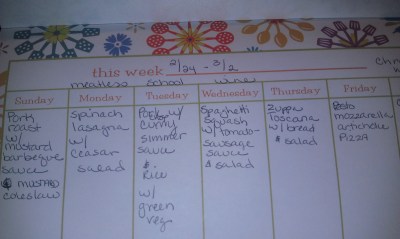 this week 2/24 - 3/2
meatless school wine
Sunday Monday Tuesday Wednesday Thursday Friday
Pork
roast
w/
mustard
barbeque
sauce
& mustard
coleslaw
spinach
lasagna
w/
ceasar
salad
w/
curry
simmer
sauce
&
Rice
w/
green
veg
Spaghetti
squash
w/ tomato-
sausage
sauce
& salad
Zuppa
Toscana
w/ bread
& salad
mozzarella
artichoke
Pizza